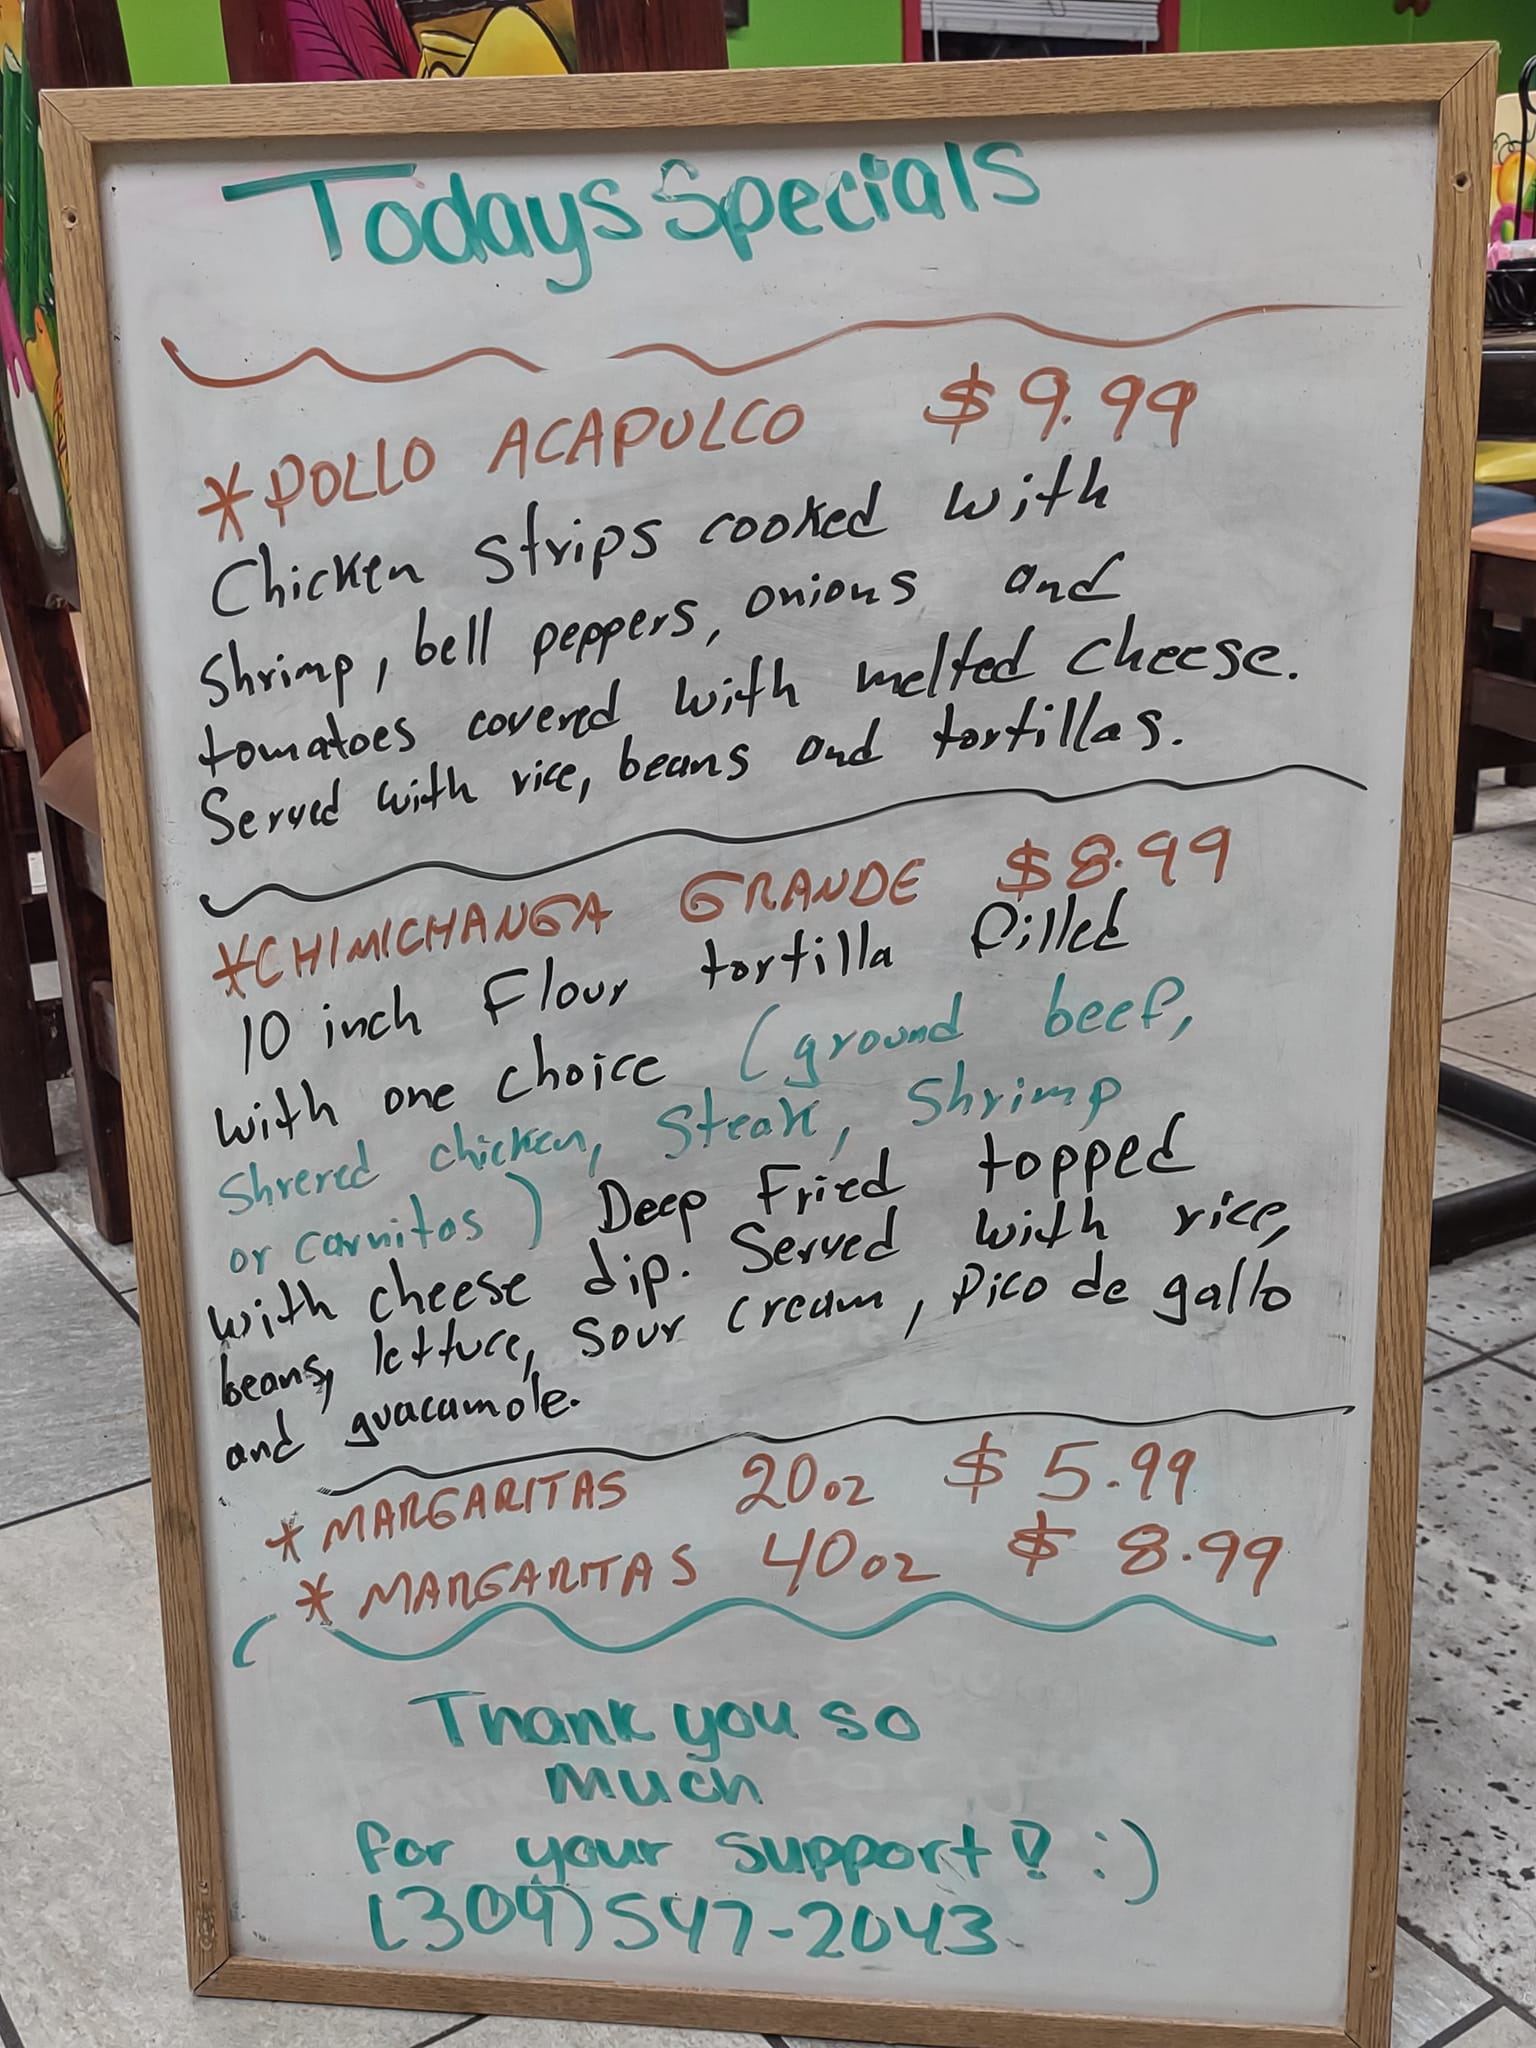 Todays Specials
*POLLO ACAPULCO $9.99
Chicken strips cooked with
shrimp, bell peppers, onions and
tomatoes covered with melted cheese.
Served with rice, beans and tortillas.
*CHIMICHANGA GRANDE $8.99
10 inch Flour tortilla filled
with one choice (ground beef,
Shrered chicken, Steak, Shrimp
or carnitas) Deep Fried topped
with cheese dip. Served with rice,
beans, lettuce, sour cream, pico de gallo
and guacamole.
* MARGARITAS 20oz $5.99
* MARGARITAS 40oz $8.99
Thank you so
much
for your support! :)
(309)547-2043